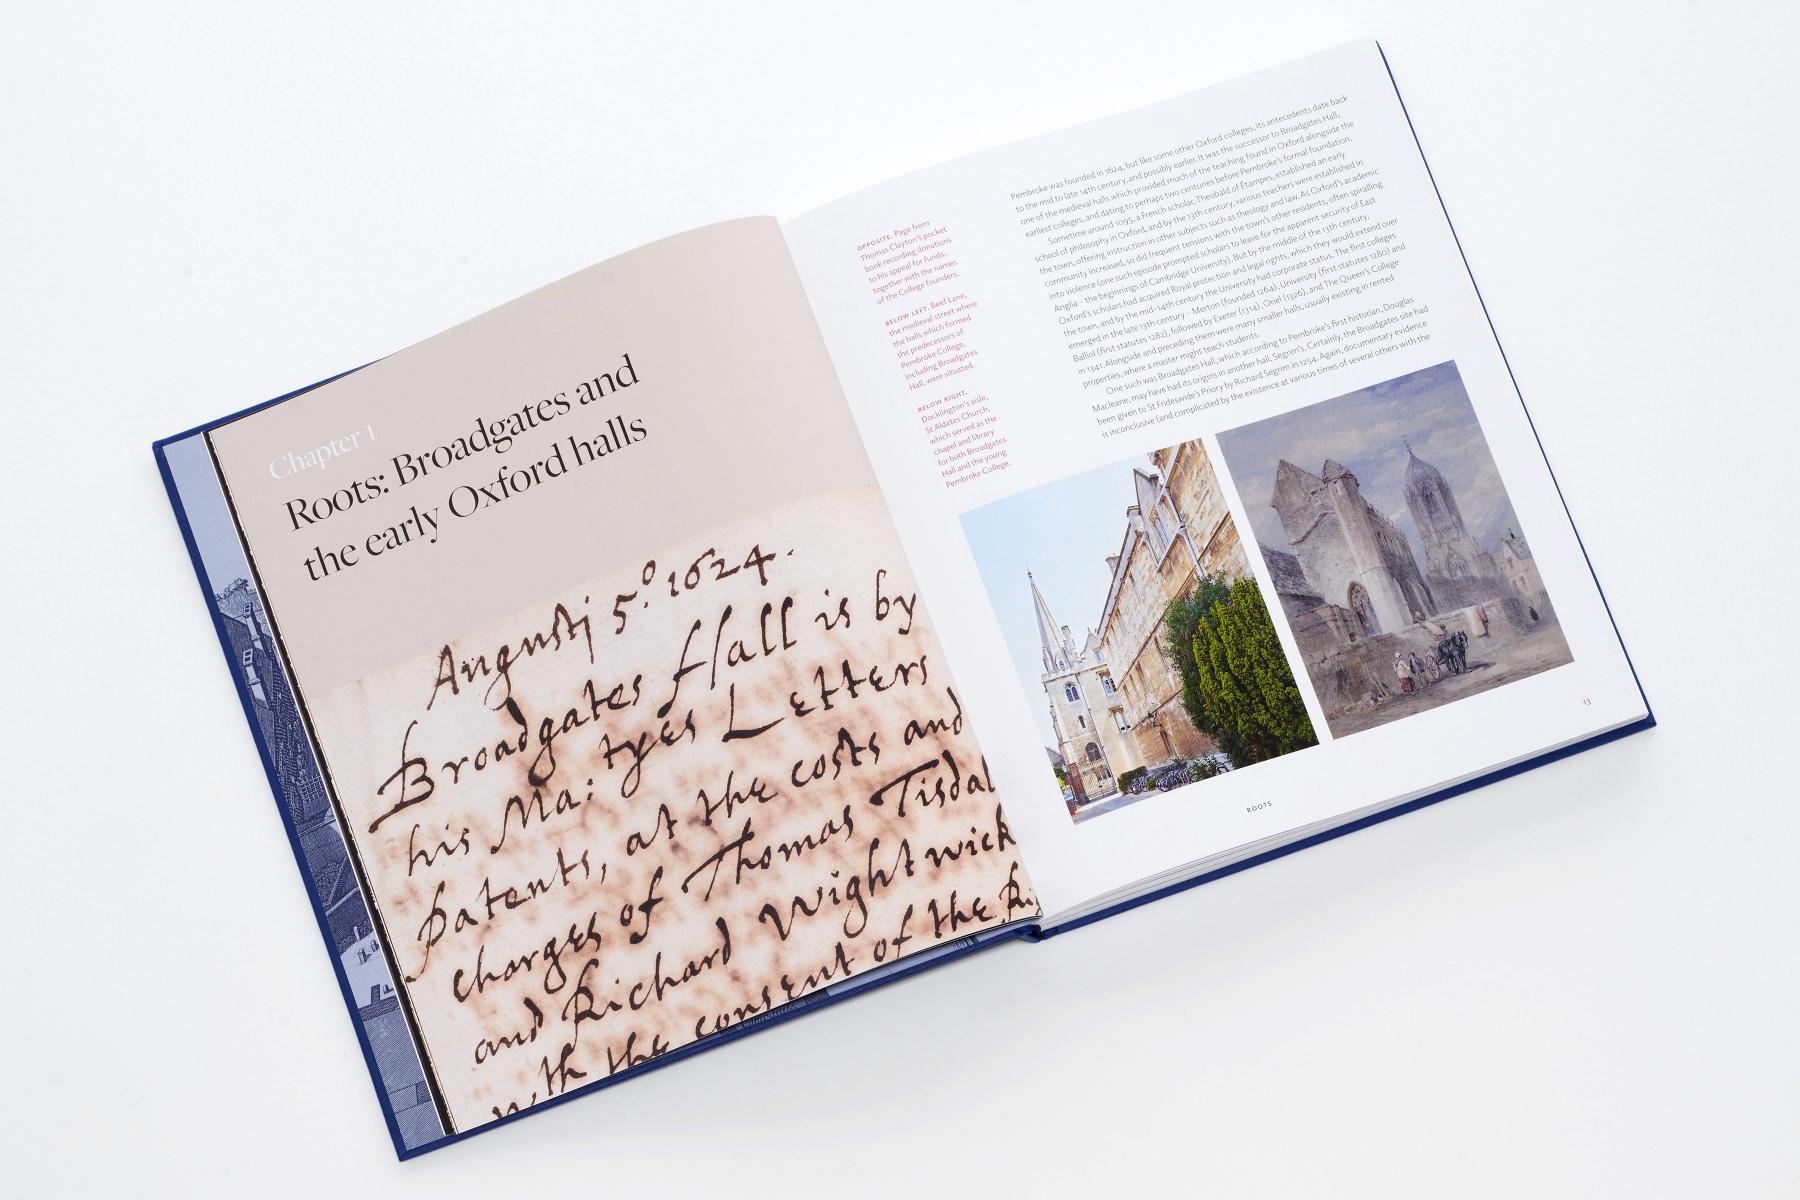 Chapter 1
Roots: Broadgates and
the early Oxford halls
Augustj 5.º 1624.
Broadgates Hall is by
his Ma: tyes Letters
patents, at the costs and
charges of Thomas Tisdal
and Richard Wightwick
wth the consent of the Ri
OPPOSITE. Page from
Thomas Clayton's pocket
book recording donations
to his appeal for funds,
together with the names
of the College founders.
BELOW LEFT. Beef Lane,
the medieval street where
the halls which formed
the predecessors of
Pembroke College,
including Broadgates
Hall, were situated.
BELOW RIGHT.
Docklington's aisle,
St Aldates Church,
which served as the
chapel and library
for both Broadgates
Hall and the young
Pembroke College.
Pembroke was founded in 1624, but like some other Oxford colleges, its antecedents date back
to the mid to late 14th century, and possibly earlier. It was the successor to Broadgates Hall,
one of the medieval halls which provided much of the teaching found in Oxford alongside the
earliest colleges, and dating to perhaps two centuries before Pembroke's formal foundation.
Sometime around 1095, a French scholar, Theobald of Étampes, established an early
school of philosophy in Oxford, and by the 13th century, various teachers were established in
the town, offering instruction in other subjects such as theology and law. As Oxford's academic
community increased, so did frequent tensions with the town's other residents, often spiralling
into violence (one such episode prompted scholars to leave for the apparent security of East
Anglia – the beginnings of Cambridge University). But by the middle of the 13th century,
Oxford's scholars had acquired Royal protection and legal rights, which they would extend over
the town, and by the mid-14th century the University had corporate status. The first colleges
emerged in the late 13th century – Merton (founded 1264), University (first statutes 1280) and
Balliol (first statutes 1282), followed by Exeter (1314), Oriel (1326), and The Queen's College
in 1341. Alongside and preceding them were many smaller halls, usually existing in rented
properties, where a master might teach students.
One such was Broadgates Hall, which according to Pembroke's first historian, Douglas
Macleane, may have had its origins in another hall, Segrim's. Certainly, the Broadgates site had
been given to St Frideswide's Priory by Richard Segrim in 1254. Again, documentary evidence
is inconclusive (and complicated by the existence at various times of several others with the
ROOTS
13